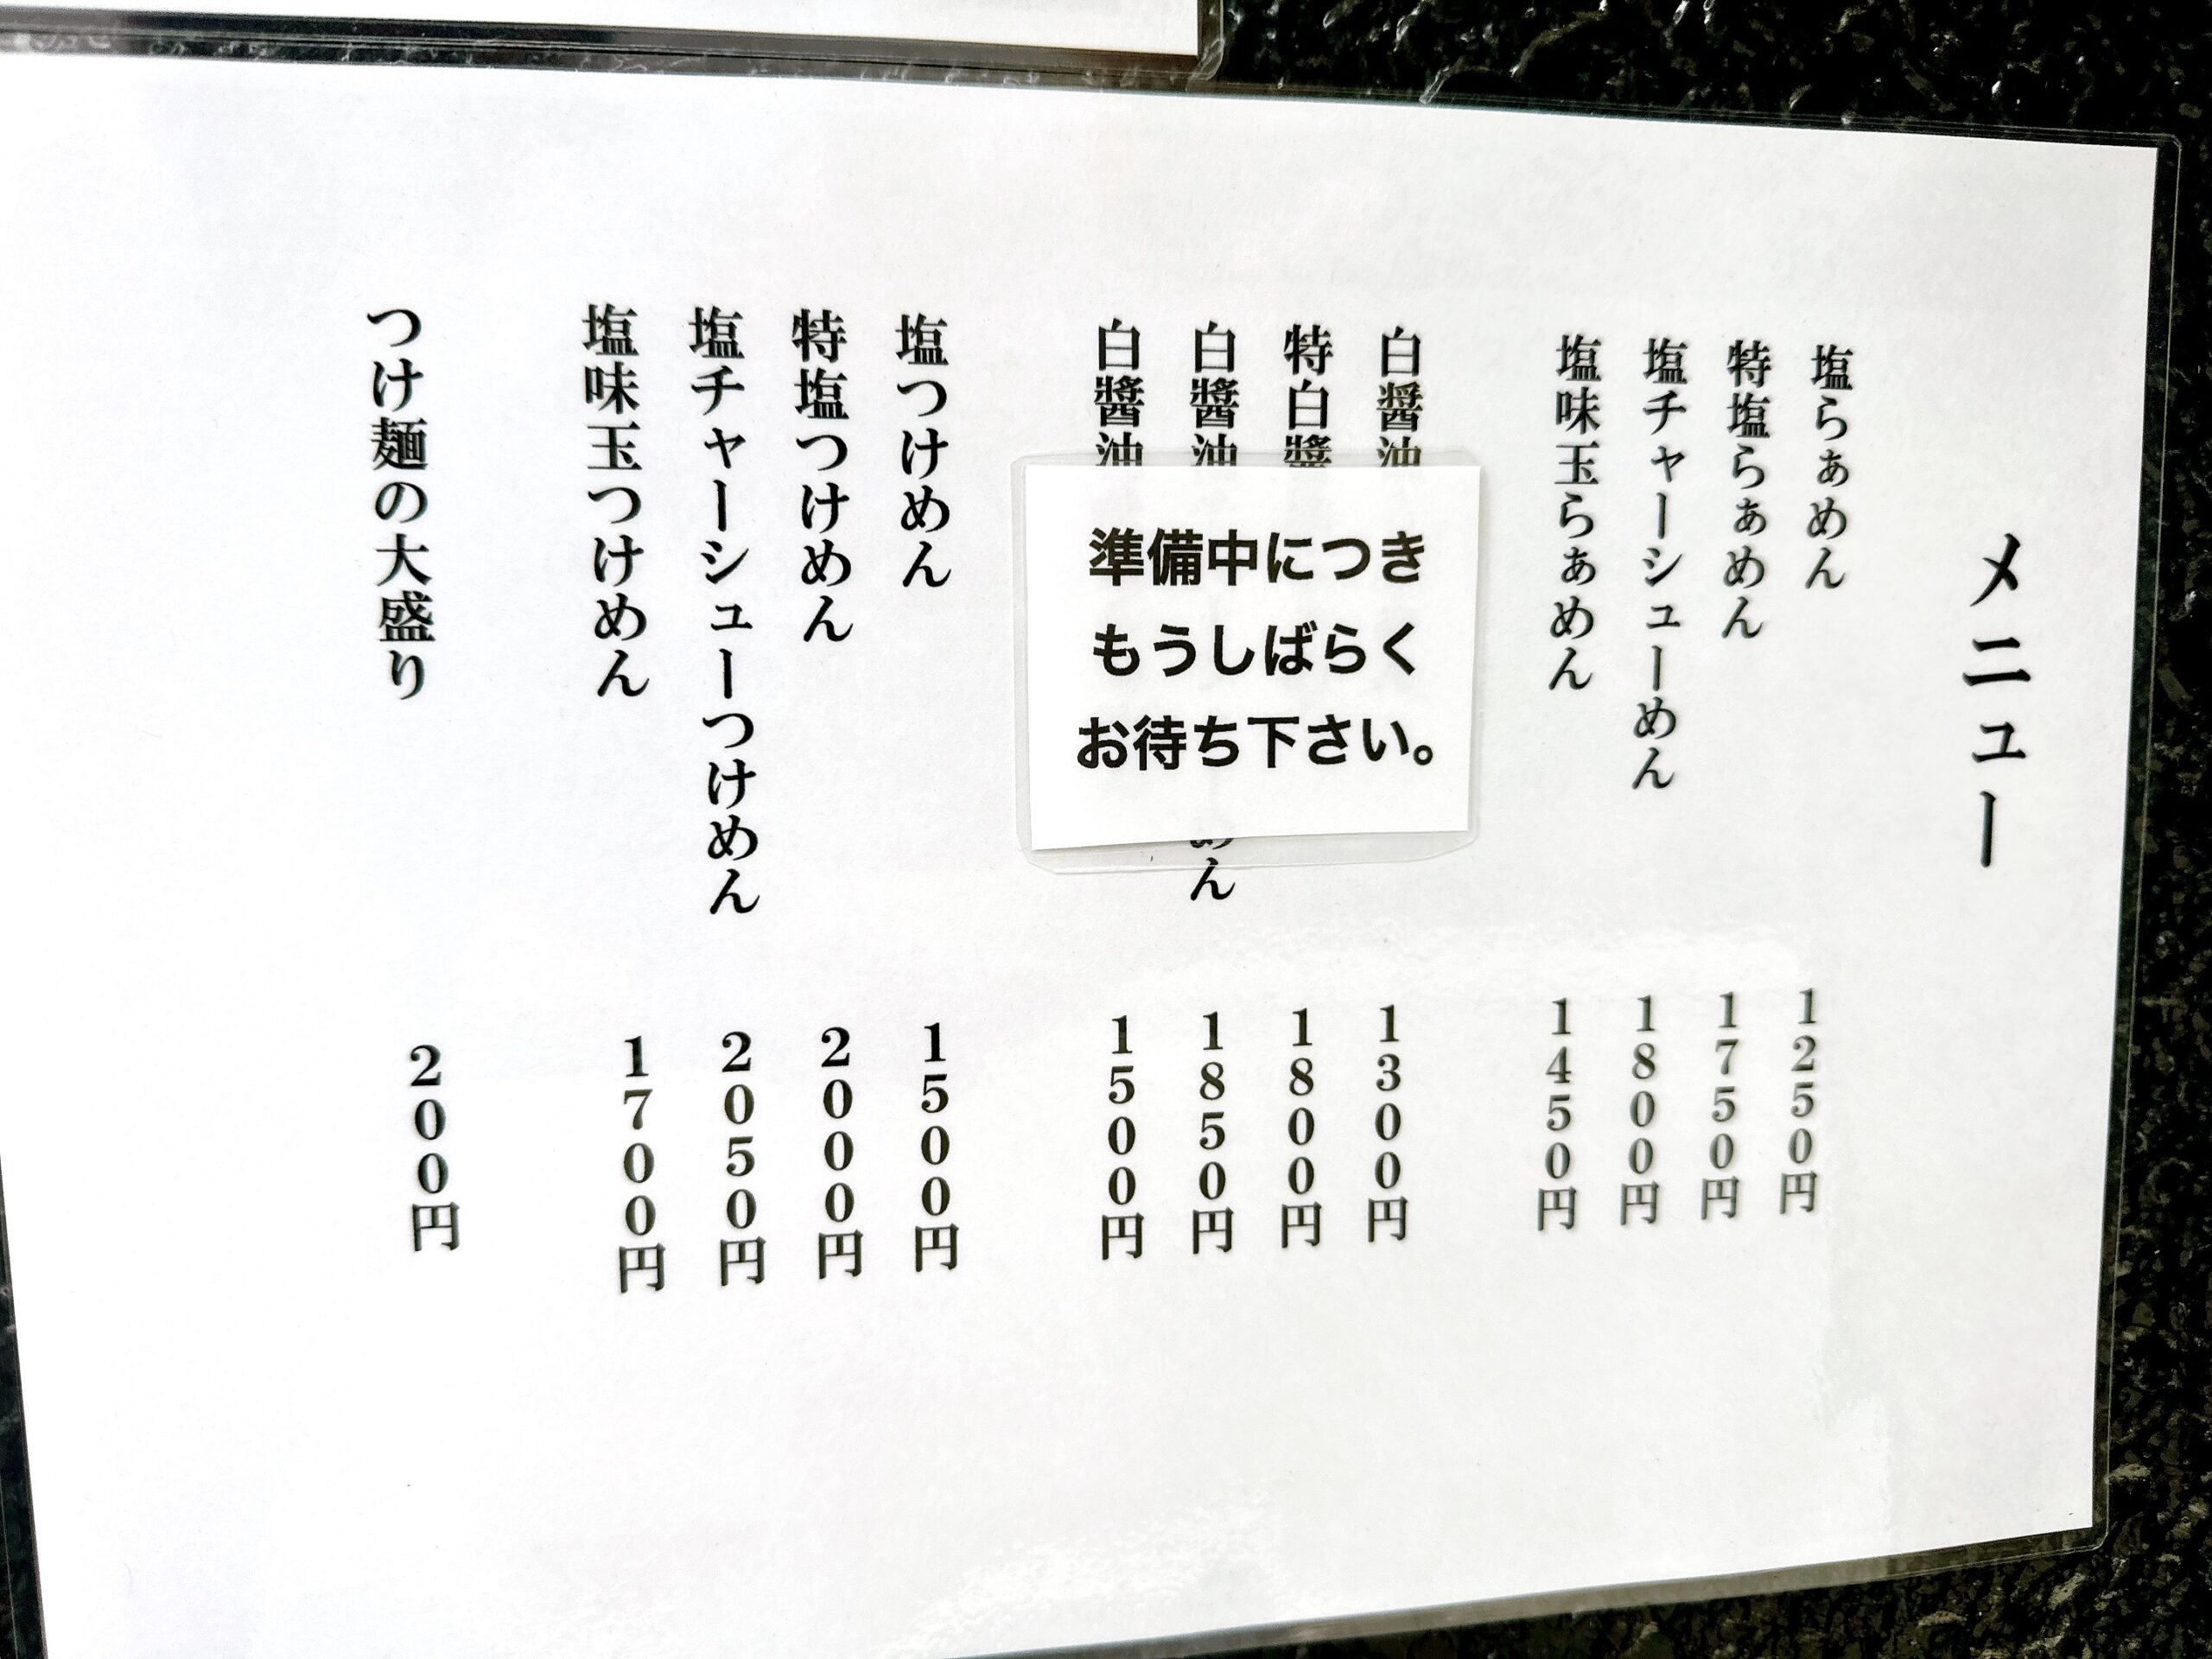 メニュー
塩らぁめん 1250円
特塩らぁめん 1750円
塩チャーシューめん 1800円
塩味玉らぁめん 1450円
白醤油 1300円
特白醬 1800円
白醬油 めん 1850円
白醬油 1500円
準備中につき
もうしばらく
お待ち下さい。
塩つけめん 1500円
特塩つけめん 2000円
塩チャーシューつけめん 2050円
塩味玉つけめん 1700円
つけ麺の大盛り 200円